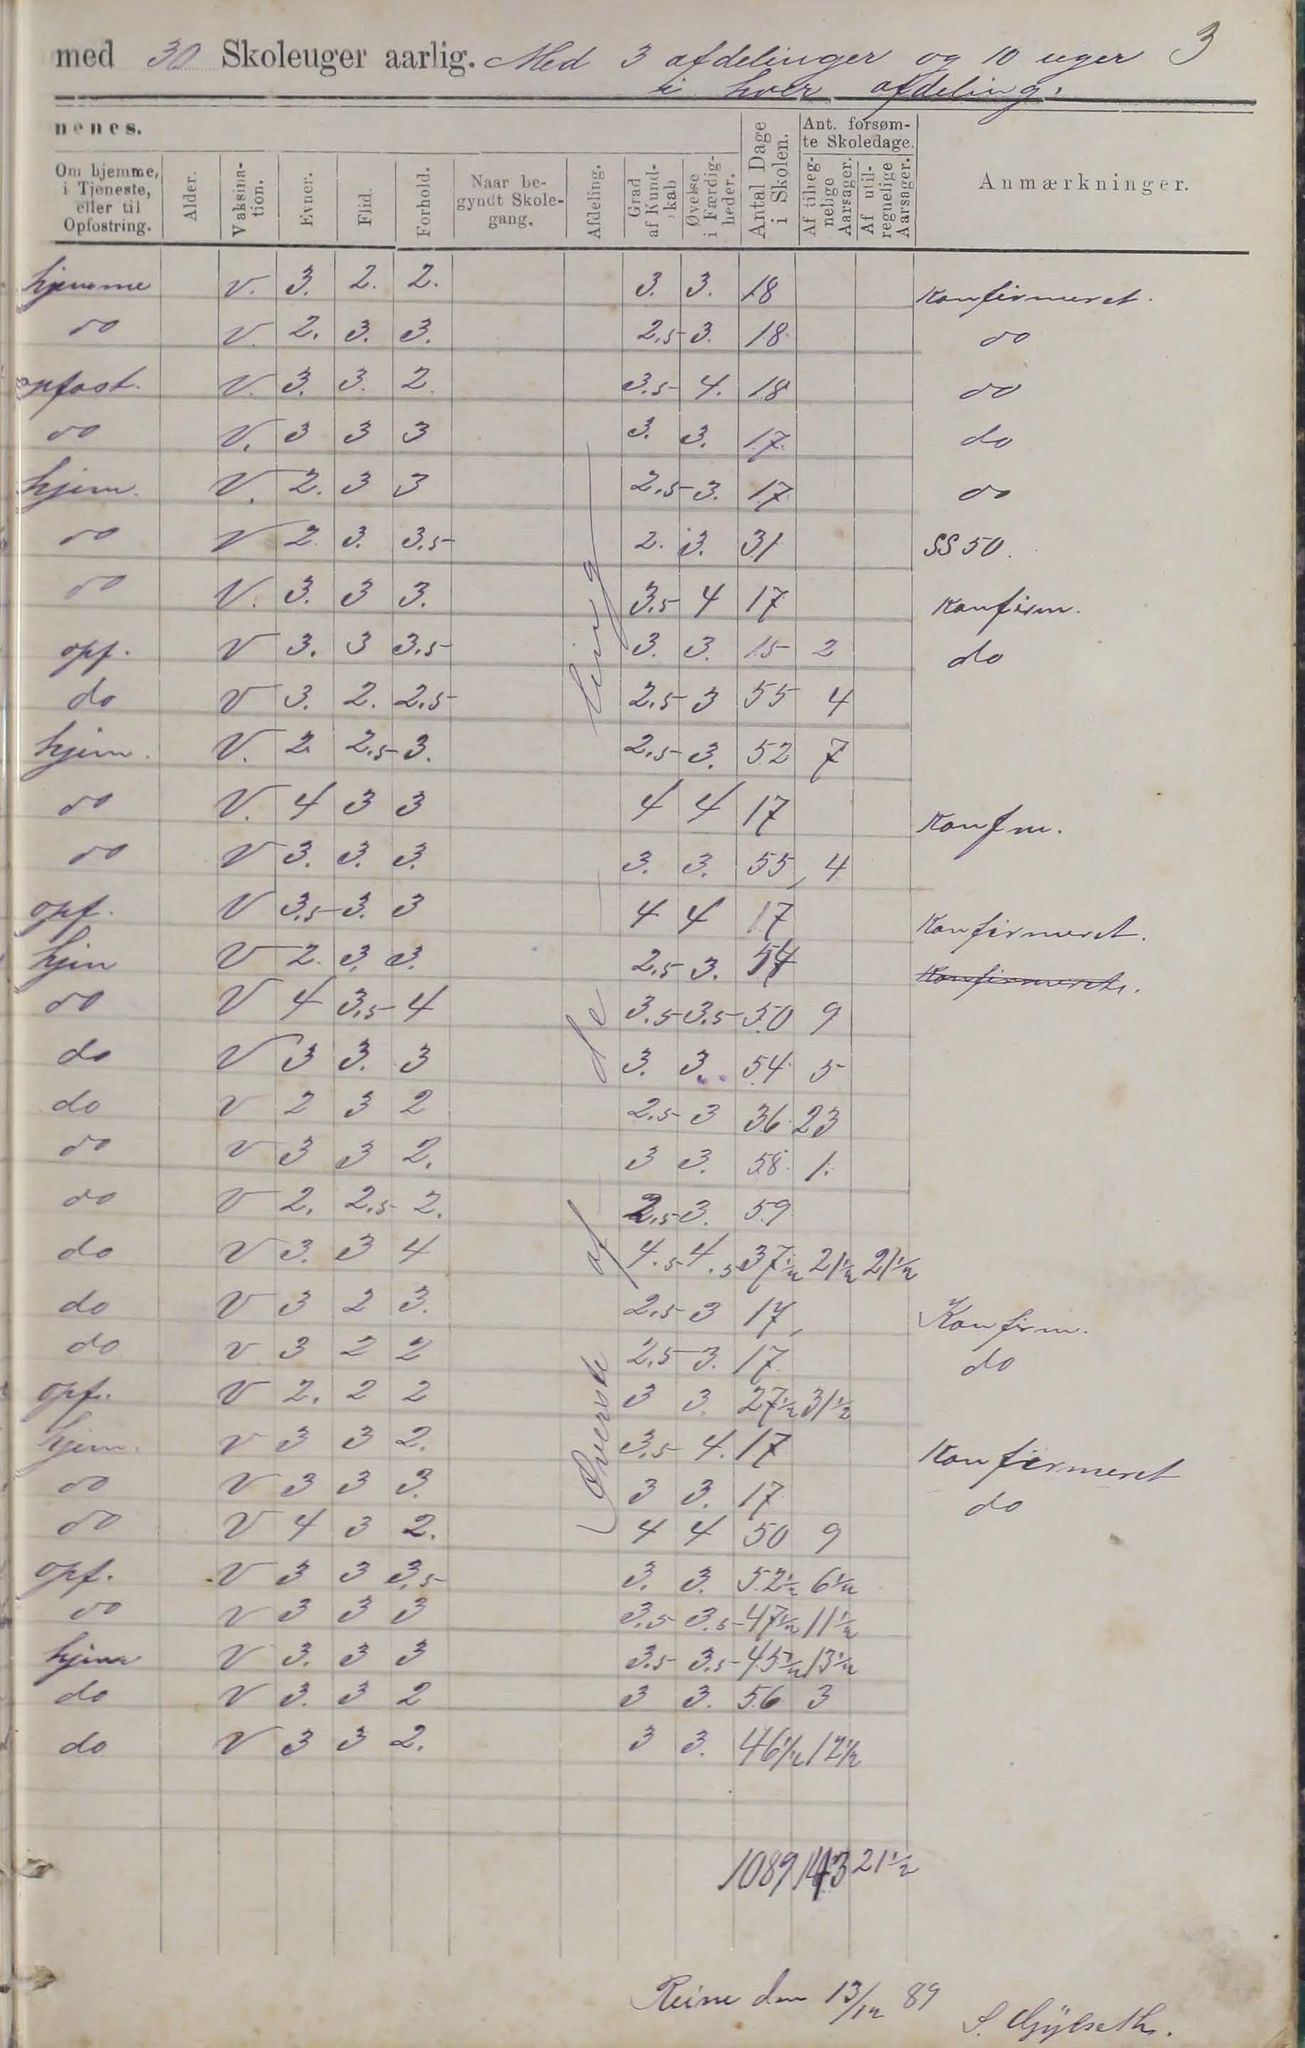 med 30 Skoleuger aarlig. Med 3 afdelinger og 10 uger 3
i hver afdeling.
nenes. Antal Dage i Skolen. Ant. forsømte Skoledage. Anmærkninger.
Om hjemme, i Tjeneste, eller til Opfostring. Alder. Vaksination. Evner. Flid. Forhold. Naar begyndt Skolegang. Afdeling. Grad af Kundskab Øvelse i Færdigheder. Af tilregnelige Aarsager. Af utilregnelige Aarsager.
hjemme V. 3. 2. 2. 3. 3. 18 Konfirmeret.
do V. 2. 3. 3. 2,5 3. 18 do
opfost. V. 3. 3. 2. 3,5 4. 18 do
do V. 3 3 3 3. 3. 17. do
hjem. V. 2. 3 3 2,5 3. 17 do
do V 2. 3. 3,5 2. 3. 31 SS 50.
do V. 3. 3 3. 3,5 4 17 Konfirm.
opf. V 3. 3 3,5 3. 3. 15 2 do
do V 3. 2. 2,5 2,5 3 55 4
hjem. V. 2 2,5 3. 2,5 3. 52 7
do V. 4 3 3 4 4 17 Konfm.
do V 3. 3. 3. 3. 3. 55 4
opf. V 3,5 3. 3 4 4 17 Konfirmeret.
hjem V 2. 3. 3. 2,5 3. 54 Konfirmeret.
do V 4 3,5 4 3,5 3,5 50 9
do V 3 3. 3 3. 3. 54 5
do V 2 3 2 2,5 3 36 23
do V 3 3 2. 3 3. 58 1.
do V 2. 2,5 2. 2,5 3. 59
do V 3. 3 4 4,5 4,5 37½ 21½ 21½
do V 3 2 3. 2,5 3 17 Konfirm.
do V 3 2 2 2,5 3. 17 do
opf. V 2. 2 2 3 3. 27½ 31½
hjem. V 3 3 2. 3,5 4. 17 Konfirmeret
do V 3 3 3. 3 3. 17 do
do V 4 3 2. 4 4 50 9
opf. V 3 3 3,5 3. 3. 52½ 6½
do V 3 3 3 3,5 3,5 47½ 11½
hjem V 3. 3 3 3,5 3,5 45½ 13½
do V 3. 3 2 3 3. 56 3
do V 3 3 2. 3 3. 46½ 12½
Øverste afdeling
1089 143 21½
Reine den 13/12 89
S. Gylseth.